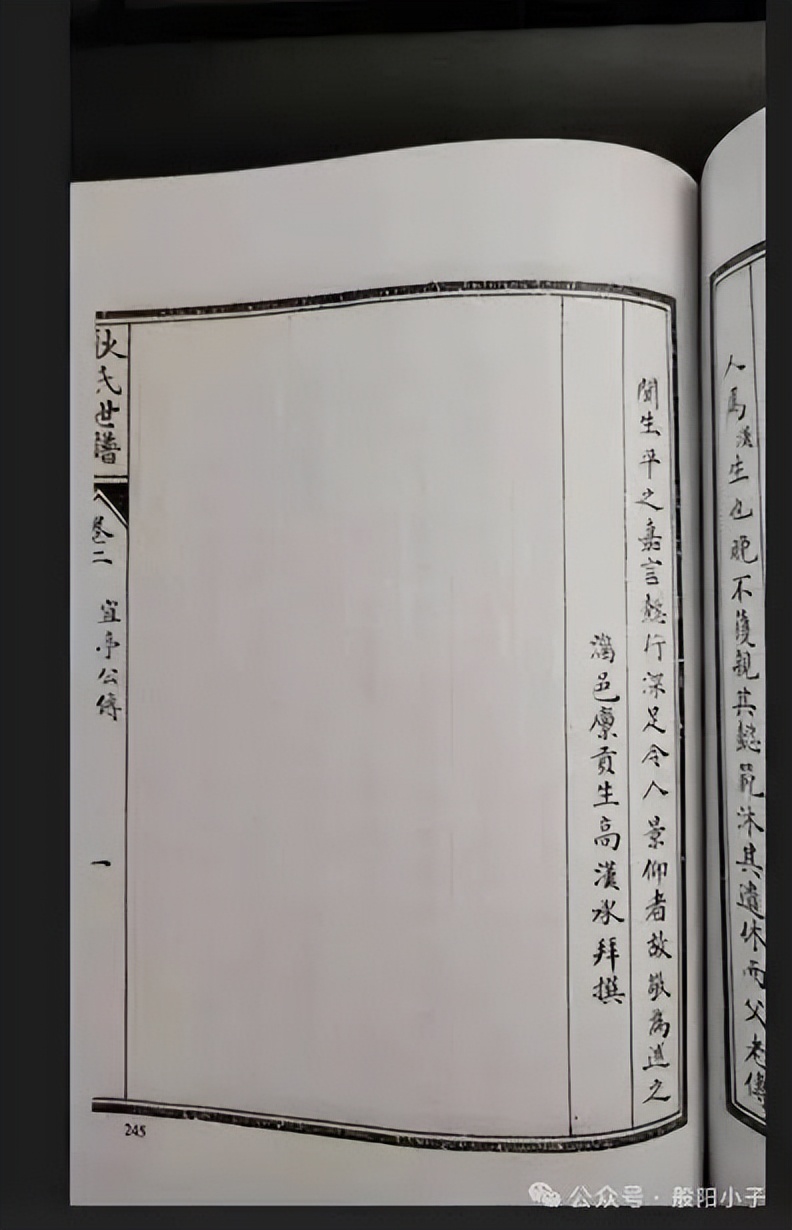 人焉漢生也晚不獲親其懿範沐其遺休而父老傳
聞生平之嘉言懿行深足令人景仰者故敬為述之
淄邑廩貢生高漢冰拜撰
氏世譜
卷二 宜亭公傳 一
245
公众号·般阳小子